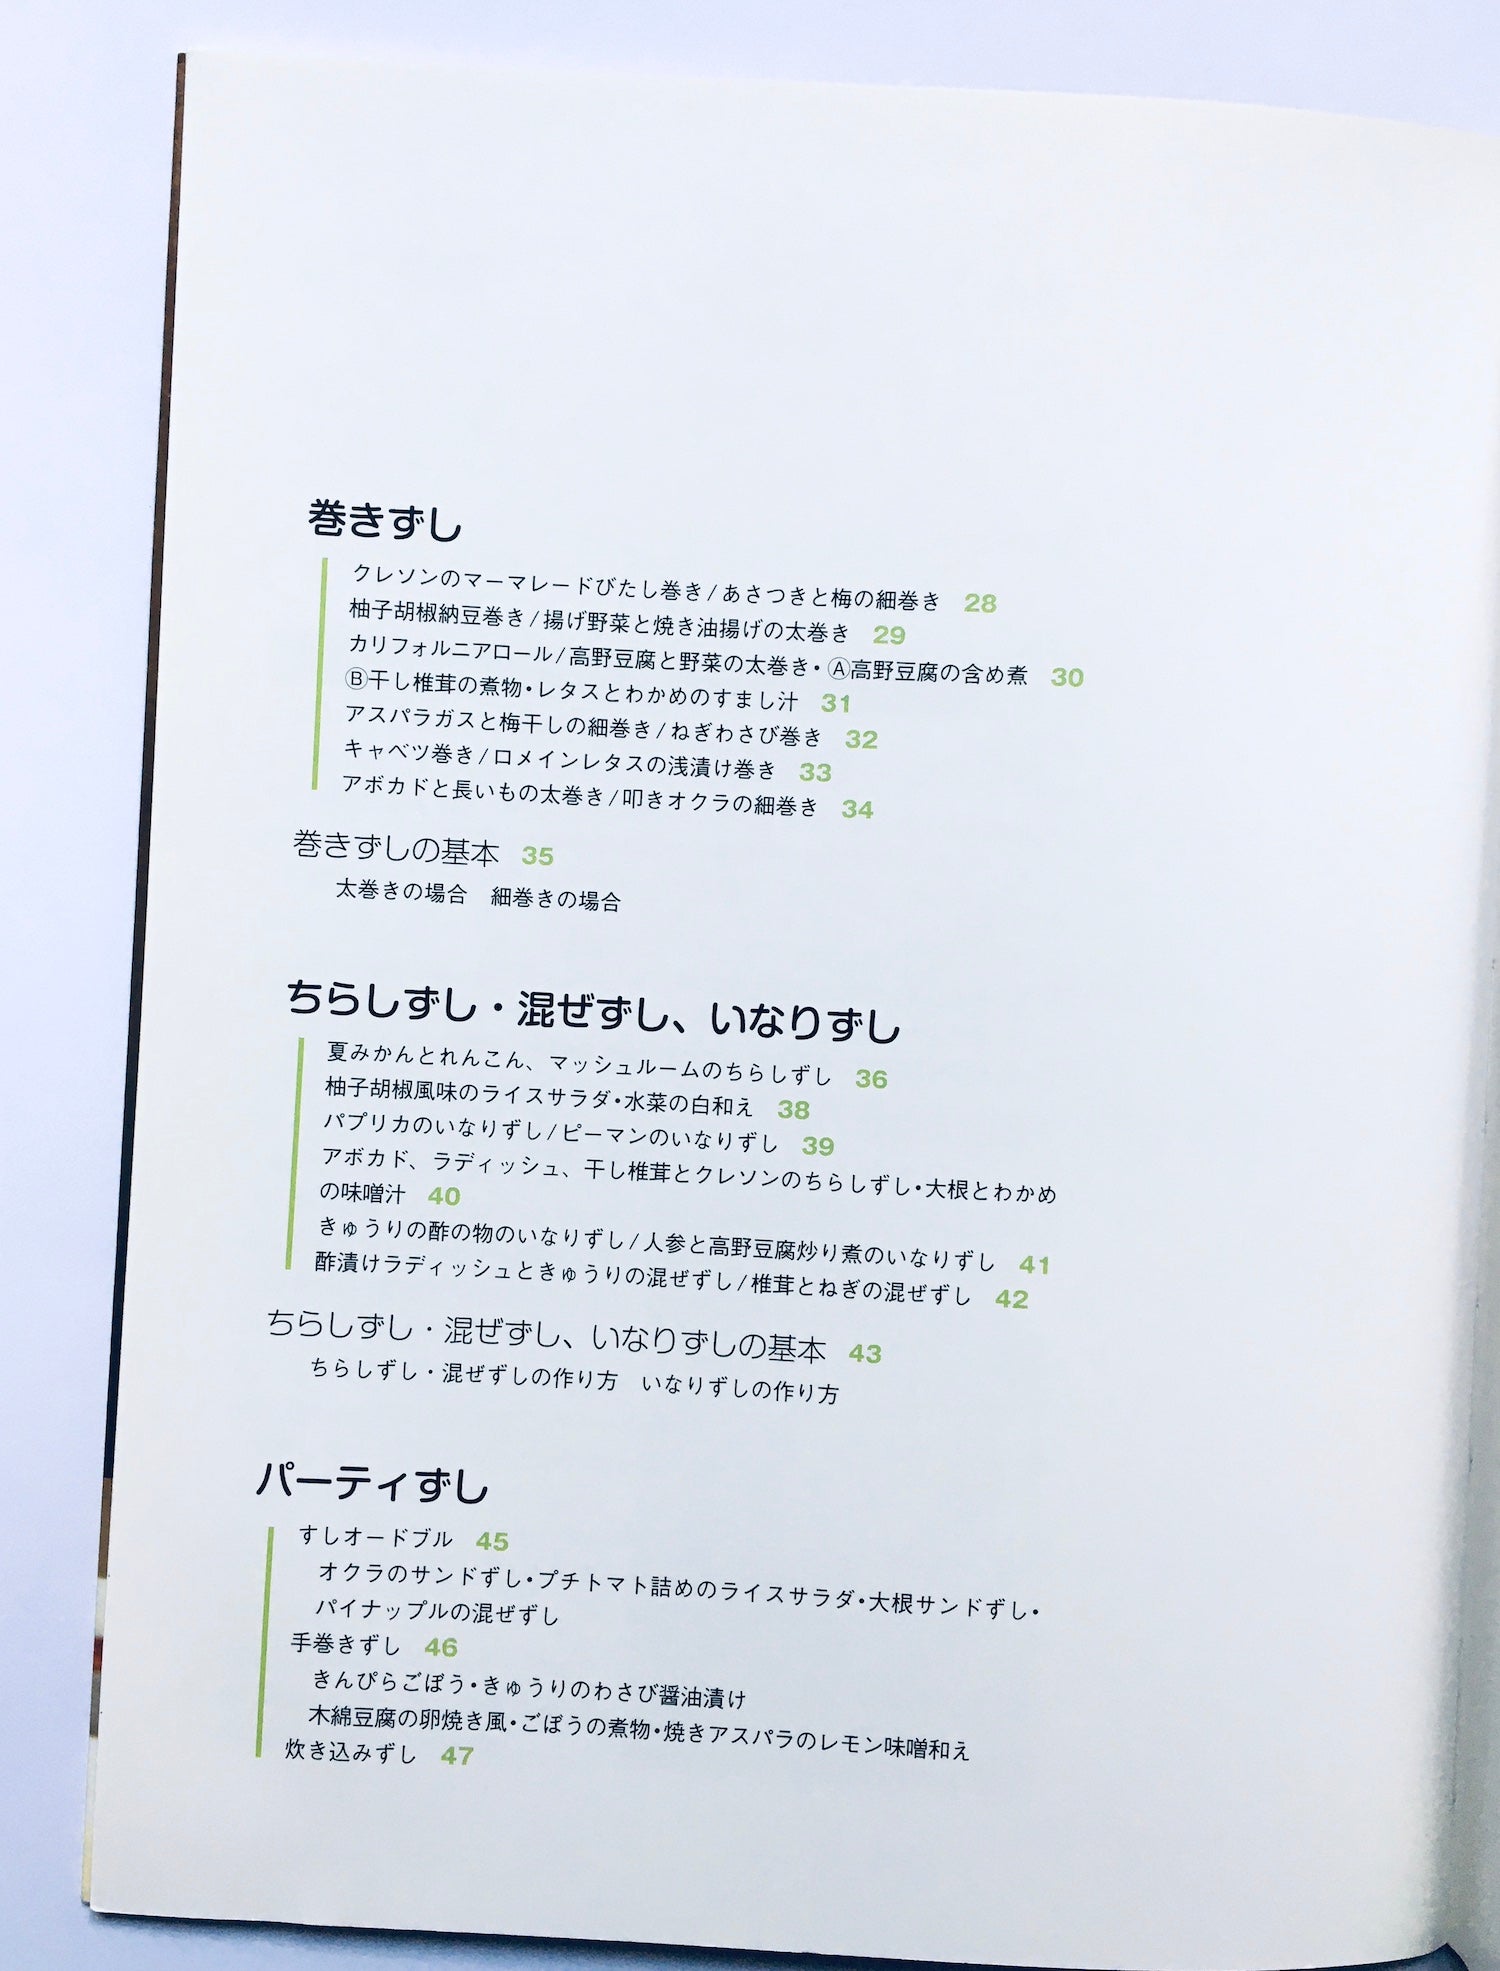 巻きずし
クレソンのマーマレードびたし巻き/あさつきと梅の細巻き 28
柚子胡椒納豆巻き/揚げ野菜と焼き油揚げの太巻き 29
カリフォルニアロール/高野豆腐と野菜の太巻き・Ⓐ高野豆腐の含め煮 30
Ⓑ干し椎茸の煮物・レタスとわかめのすまし汁 31
アスパラガスと梅干しの細巻き/ねぎわさび巻き 32
キャベツ巻き/ロメインレタスの浅漬け巻き 33
アボカドと長いもの太巻き/叩きオクラの細巻き 34
巻きずしの基本 35
太巻きの場合 細巻きの場合
ちらしずし・混ぜずし、いなりずし
夏みかんとれんこん、マッシュルームのちらしずし 36
柚子胡椒風味のライスサラダ・水菜の白和え 38
パプリカのいなりずし/ピーマンのいなりずし 39
アボカド、ラディッシュ、干し椎茸とクレソンのちらしずし・大根とわかめ
の味噌汁 40
きゅうりの酢の物のいなりずし/人参と高野豆腐炒り煮のいなりずし 41
酢漬けラディッシュときゅうりの混ぜずし/椎茸とねぎの混ぜずし 42
ちらしずし・混ぜずし、いなりずしの基本 43
ちらしずし・混ぜずしの作り方 いなりずしの作り方
パーティずし
すしオードブル 45
オクラのサンドずし・プチトマト詰めのライスサラダ・大根サンドずし・
パイナップルの混ぜずし
手巻きずし 46
きんぴらごぼう・きゅうりのわさび醤油漬け
木綿豆腐の卵焼き風・ごぼうの煮物・焼きアスパラのレモン味噌和え
炊き込みずし 47